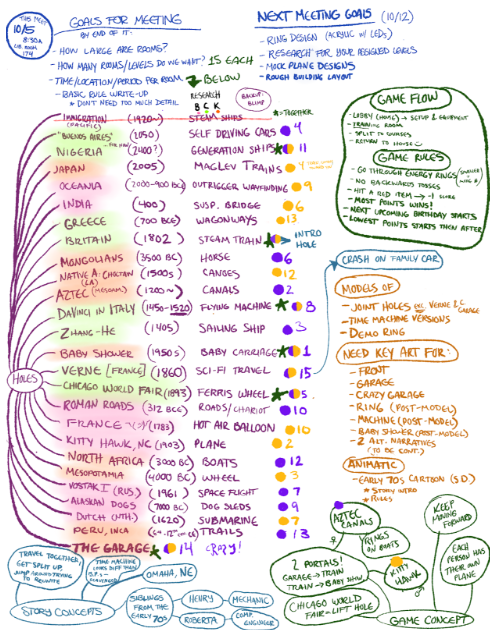 THIS MEET
10/5
8:30a
LIB. ROOM
174
GOALS FOR MEETING
BY END OF IT:
- HOW LARGE ARE ROOMS?
- HOW MANY ROOMS/LEVELS DO WE WANT? 15 EACH
- TIME/LOCATION/PERIOD PER ROOM BELOW
- BASIC RULE WRITE-UP
* DON'T NEED TOO MUCH DETAIL
NEXT MEETING GOALS (10/12)
- RING DESIGN (ACRYLIC w/ LEDs)
- RESEARCH FOR YOUR ASSIGNED LEVELS
- MOCK PLANE DESIGNS
- ROUGH BUILDING LAYOUT
RESEARCH
B C K
BACKUP: BLIMP
★=TOGETHER
HOLES
IMMIGRATION (PACIFIC) (1920~) STEAM SHIPS
"BUENOS AIRES" (2050) SELF DRIVING CARS 4
NIGERIA (2400?) GENERATION SHIPS 11
JAPAN (2005) MAGLEV TRAINS 4
OCEANIA (2000-900 BC) OUTRIGGER WAYFINDING 9
INDIA (400) SUSP. BRIDGE 6
GREECE (700 BCE) WAGONWAYS 13
BRITAIN (1802) STEAM TRAIN INTRO HOLE
MONGOLIANS (3500 BC) HORSE 6
NATIVE A. CHOCTAW (LA) (1500s) CANOES 12
AZTEC (MESOAM.) (1200~) CANALS 2
DAVINCI IN ITALY (1450-1520) FLYING MACHINE 8
ZHANG-HE (1405) SAILING SHIP 3
BABY SHOWER (1950s) BABY CARRIAGE 1
VERNE [FRANCE] (1860) SCI-FI TRAVEL 15
CHICAGO WORLD FAIR (1893) FERRIS WHEEL 5
ROMAN ROADS (312 BCE) ROADS/CHARIOT 10
FRANCE (1783) HOT AIR BALLOON 10
KITTY HAWK, NC (1903) PLANE 2
NORTH AFRICA (3000 BC) BOATS 12
MESOPOTAMIA (4000 BC) WHEEL 3
VOSTAK 1 (RUS.) (1961) SPACE FLIGHT 7
ALASKAN DOGS (7000 BC) DOG SLEDS 9
DUTCH (NTH.) (1620) SUBMARINE 7
PERU, INCA TRAILS 13
THE GARAGE 14 CRAZY!
GAME FLOW
- LOBBY (HOUSE) → SETUP & EQUIPMENT
- TRAINING ROOM
- SPLIT IN COURSES
- RETURN TO HOUSE
GAME RULES
- GO THROUGH ENERGY RINGS
- NO BACKWARDS TOSSES
- HIT A RED ITEM → -1 SCORE
- MOST POINTS WINS!
- NEXT UPCOMING BIRTHDAY STARTS
- LOWEST POINTS STARTS THEN AFTER
CRASH ON FAMILY CAR
MODELS OF
- JOINT HOLES EXC. VERNE & C. GARAGE
- TIME MACHINE VERSIONS
- DEMO RING
NEED KEY ART FOR:
- FRONT
- GARAGE
- CRAZY GARAGE
- RING (POST-MODEL)
- MACHINE (POST-MODEL)
- BABY SHOWER (POST-MODEL)
- 2 ALT. NARRATIVES
(TO BE CONT.)
ANIMATIC
- EARLY 70s CARTOON (SD)
* STORY INTRO
* RULES
TRAVEL TOGETHER, GET SPLIT UP, JUMP AROUND TRYING TO REUNITE
TIME MACHINE LOOKS DIFF EVERY
OMAHA, NE
STORY CONCEPTS
SIBLINGS FROM THE EARLY 70s
HENRY
MECHANIC
ROBERTA
COMP. ENGINEER
AZTEC CANALS
RINGS ON BOATS
KEEP MOVING FORWARD
2 PORTALS!
GARAGE → TRAIN
TRAIN → BABY SHOW
KITTY HAWK
EACH PERSON HAS THEIR OWN PLANE
CHICAGO WORLD FAIR = LIFT HOLE
GAME CONCEPT